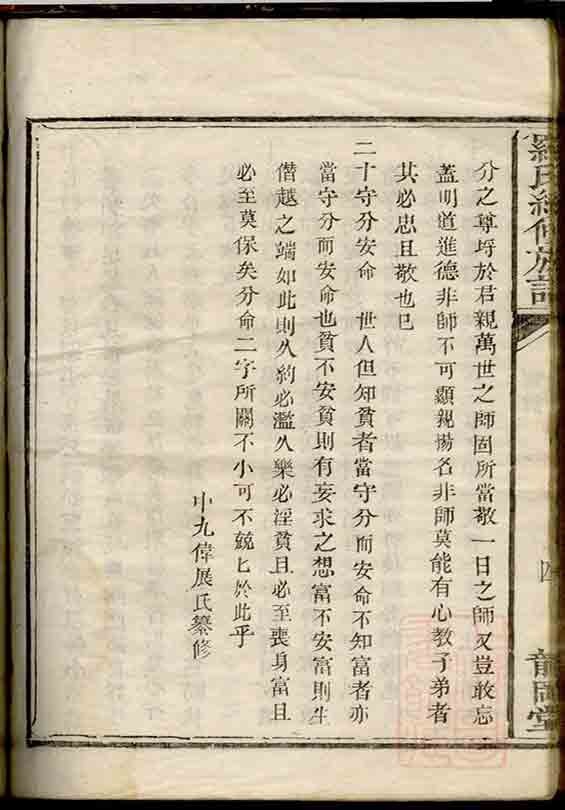 羅氏續修族譜
四
龍岡堂
分之尊埒於君親萬世之師固所當敬一日之師又豈敢忘
蓋明道進德非師不可顯親揚名非師莫能有心教子弟者
其必忠且敬也巳
二十守分安命 世人但知貧者當守分而安命不知富者亦
當守分而安命也貧不安貧則有妄求之想富不安富則生
僭越之端如此則久約必濫久樂必淫貧且必至喪身富且
必至莫保矣分命二字所關不小可不兢匕於此乎
中九偉展氏纂修